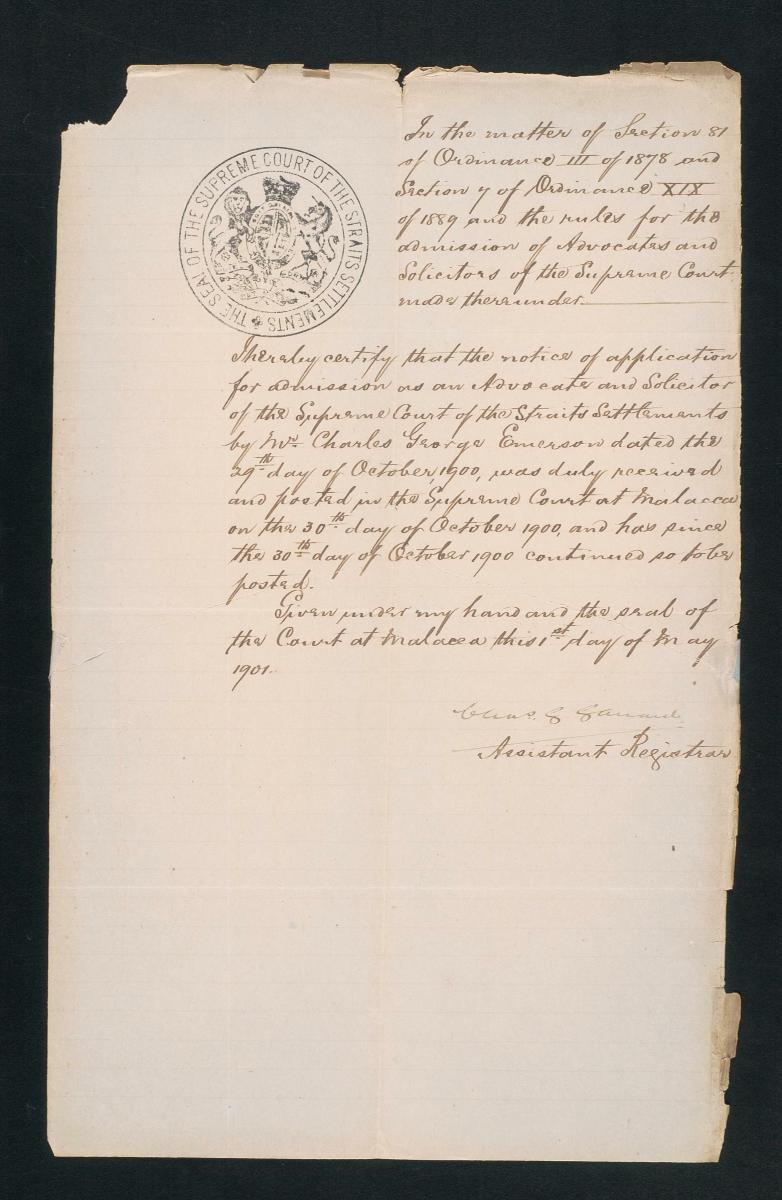 THE SEAL OF THE SUPREME COURT OF THE STRAITS SETTLEMENTS
In the matter of Section 81
of Ordinance III of 1878 and
Section 7 of Ordinance XIX
of 1889 and the rules for the
admission of Advocates and
Solicitors of the Supreme Court
made thereunder
I hereby certify that the notice of application
for admission as an Advocate and Solicitor
of the Supreme Court of the Straits Settlements
by Mr Charles George Emerson dated the
29th day of October, 1900, was duly received
and posted in the Supreme Court at Malacca
on the 30th day of October 1900, and has since
the 30th day of October 1900 continued so to be
posted.
Given under my hand and the seal of
the Court at Malacca this 1st day of May
1901.
Chas. G
Assistant Registrar